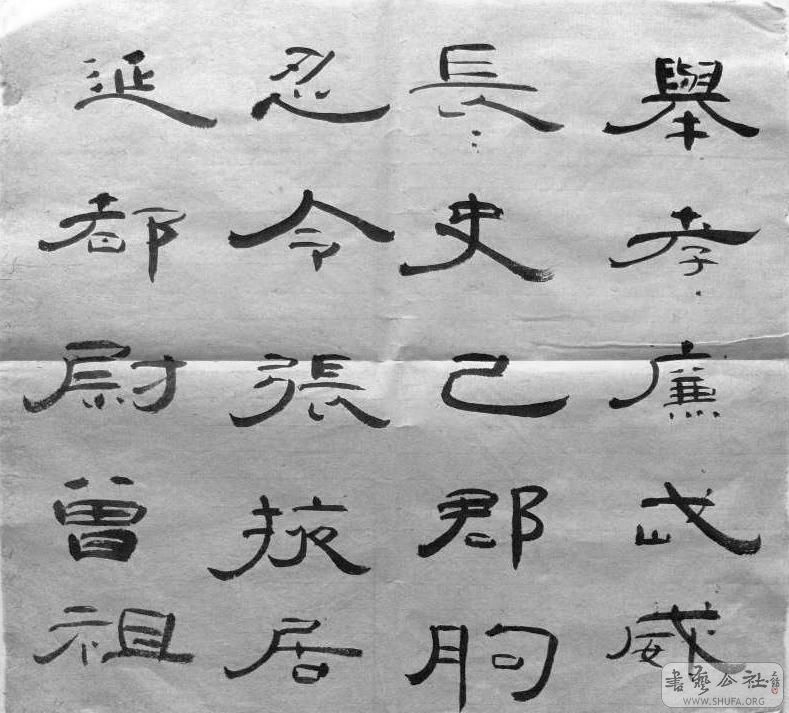 舉孝廉武威
長史己郡朐
忍令張掖居
延都尉曾祖
書藝公社
WWW.SHUFA.ORG